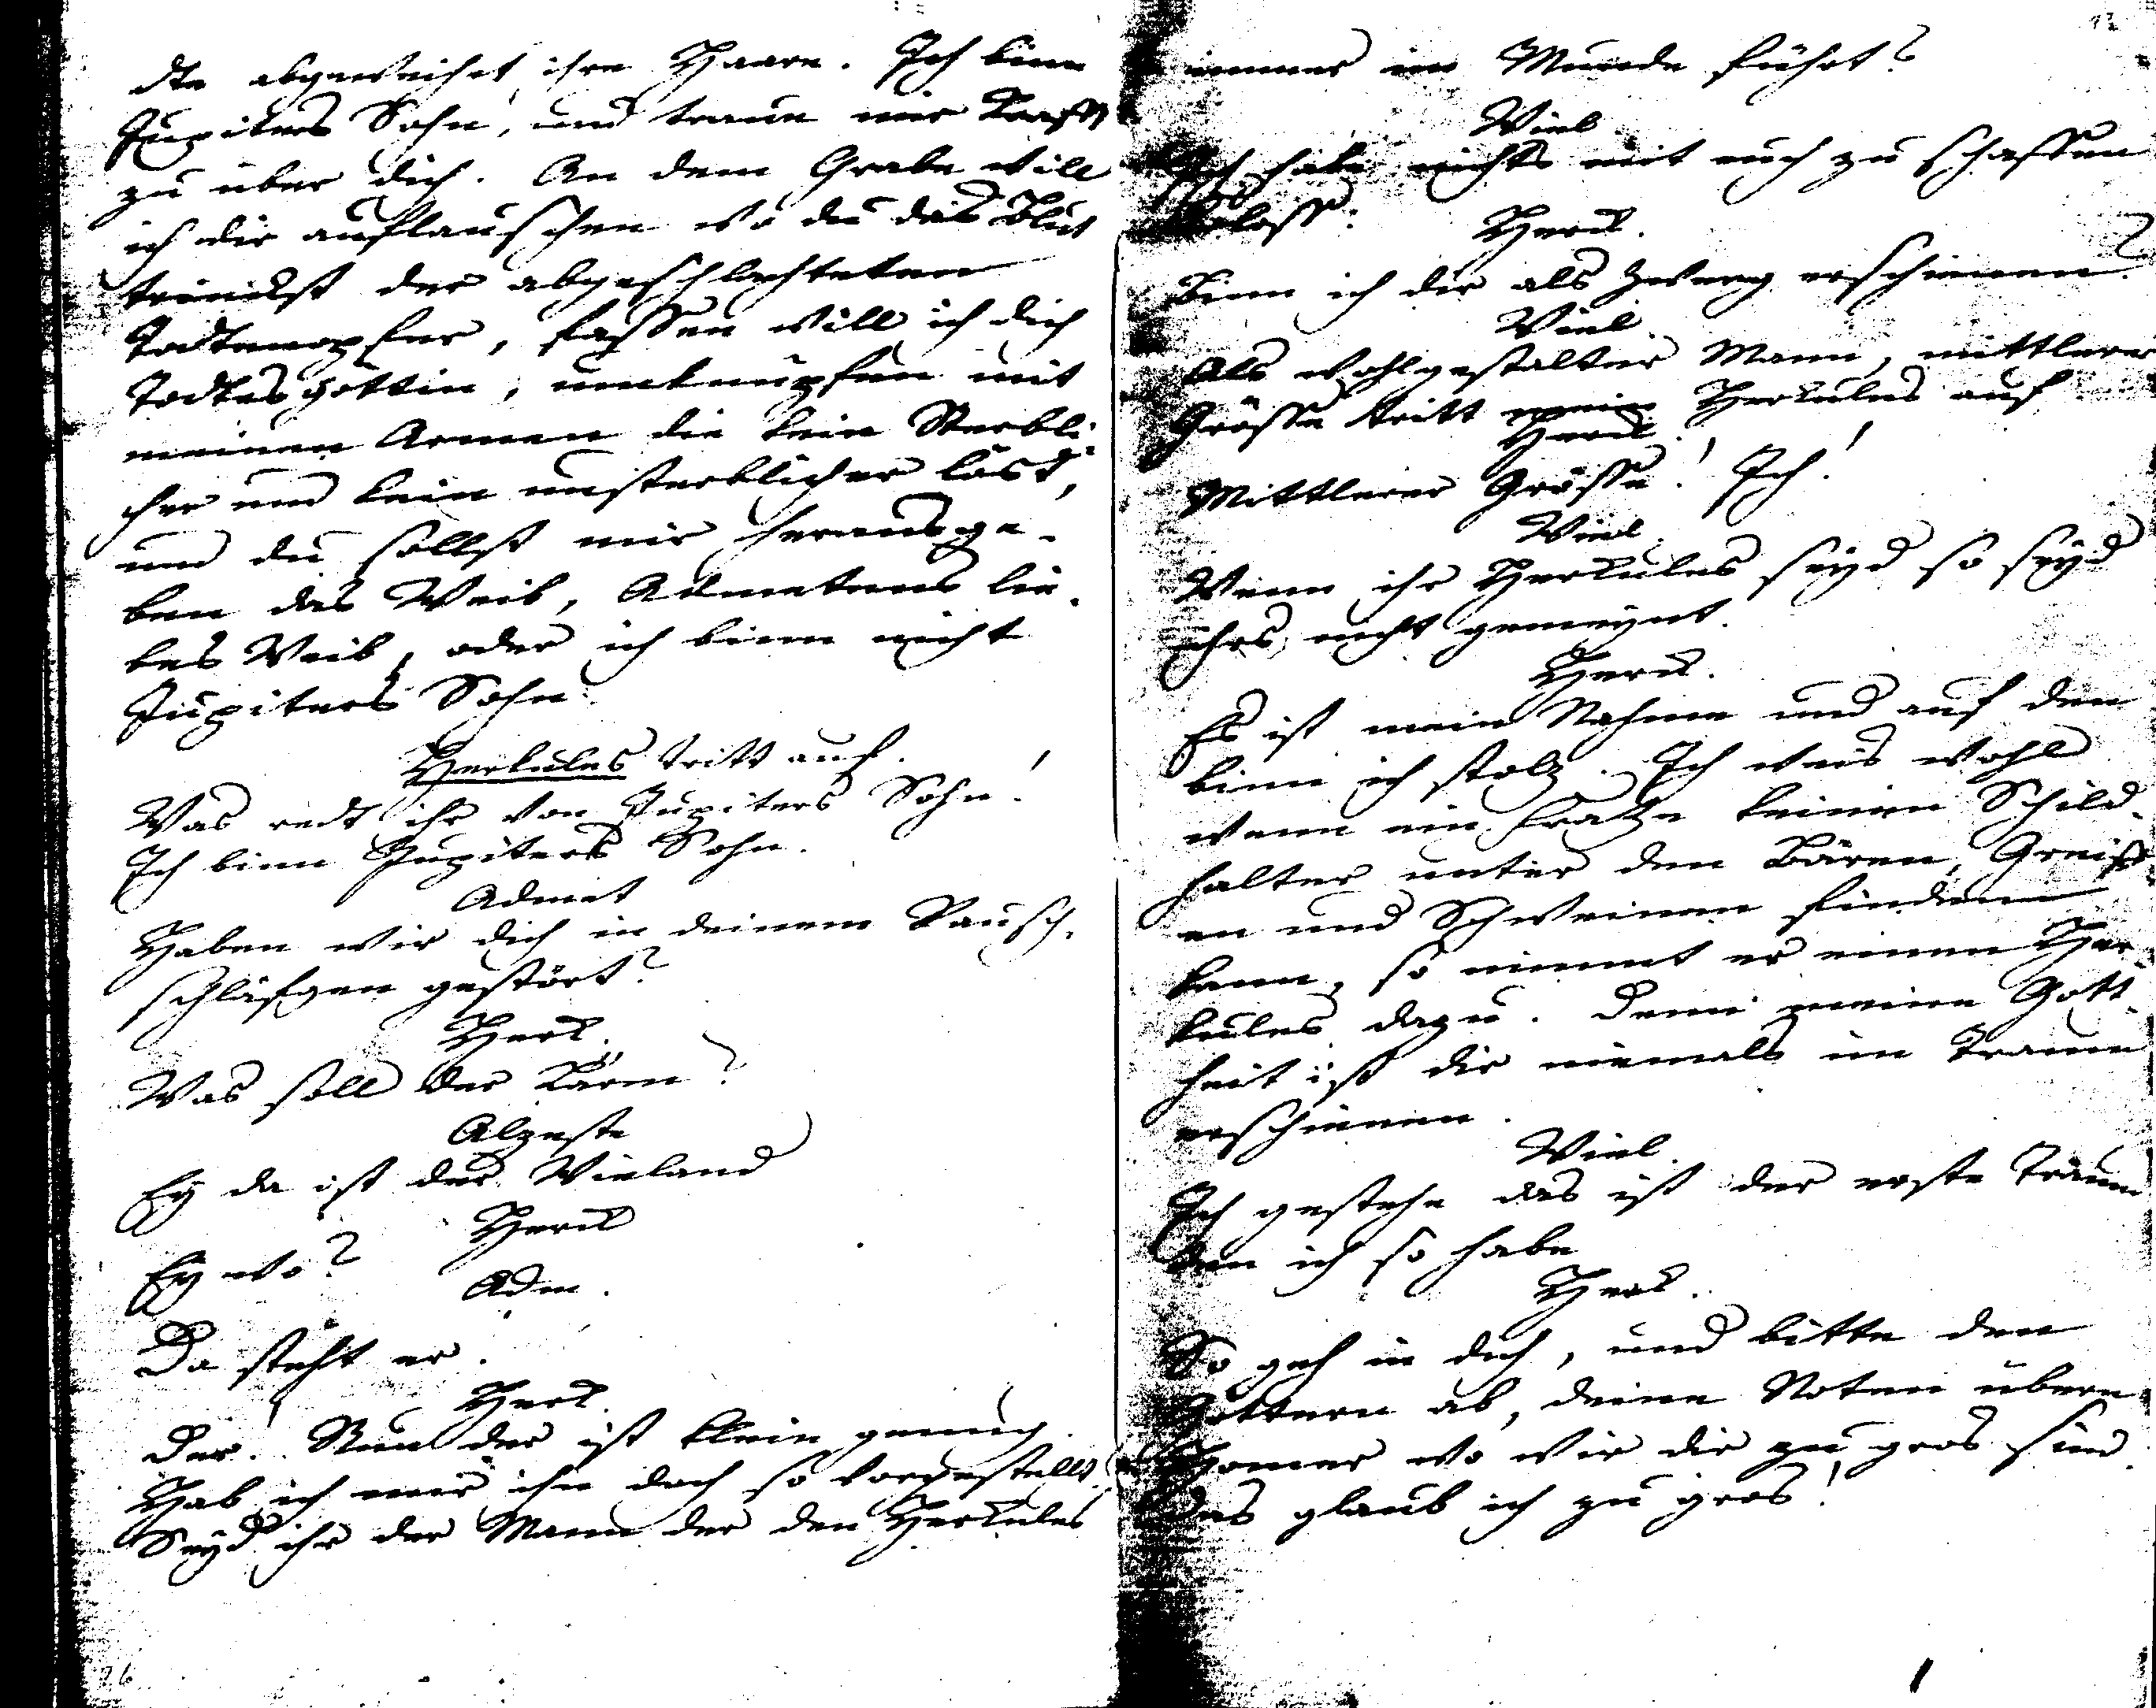 dte abgeweihet ihre Haare. Ich binn
Jupiters Sohn, und traue mir Krafft
zu über dich. An dem Grabe will
ich dir auflauschen wo du das Blut
trinckst der abgeschlachteten
Todtenopfer, fassen will ich dich
Todtesgöttin, umknüpfen mit
meinen Armen die kein Sterbli-
cher und kein unsterblicher löst,
und du sollst mir herausge-
ben das Weib, Admetens lie-
bes Weib, oder ich binn nicht
Jupiters Sohn.
Herkules tritt auf.
Was redt ihr von Jupiters Sohn!
Ich binn Jupiters Sohn.
Admet
Haben wir dich in deinem Rausch-
schläfgen gestört?
Herk.
Was soll der Lärm?
Alzeste
Ey da ist der Wieland
Herk
Ey wo?
Adm.
Da steht er.
Herk.
Der! Nun der ist klein genug.
Hab ich mir ihn doch so vorgestellt.
Seyd ihr der Mann der den Herkules
76
immer im Munde führt?
Wiel
Ich habe nichts mit euch zu schaffen
Koloss.
Herk.
Binn ich dir als Zwerg erschienen?
Wiel.
Als wohlgestalter Mann, mittlerer
Grösse tritt mein Herkules auf
Herk.
Mittlerer Grösse! Ich!
Wiel.
Wenn ihr Herkules seyd so seyd
ihrs nicht gemeynt.
Herk.
Es ist mein Nahme und auf den
binn ich stolz. Ich weis wohl
wenn ein Fratze keinen Schild-
halter unter den Bären, Greif-
en und Schweinen finden
kann, so nimmt er einen Her-
kules dazu. Denn meine Gott-
heit ist dir niemals im Traum
erschienen.
Wiel.
Ich gestehe das ist der erste Traum
den ich so habe
Herk.
So geh in dich, und bitte den
Göttern ab, deine Noten übern
Homer wo wir dir zu gros sind.
Das glaub ich zu gros!